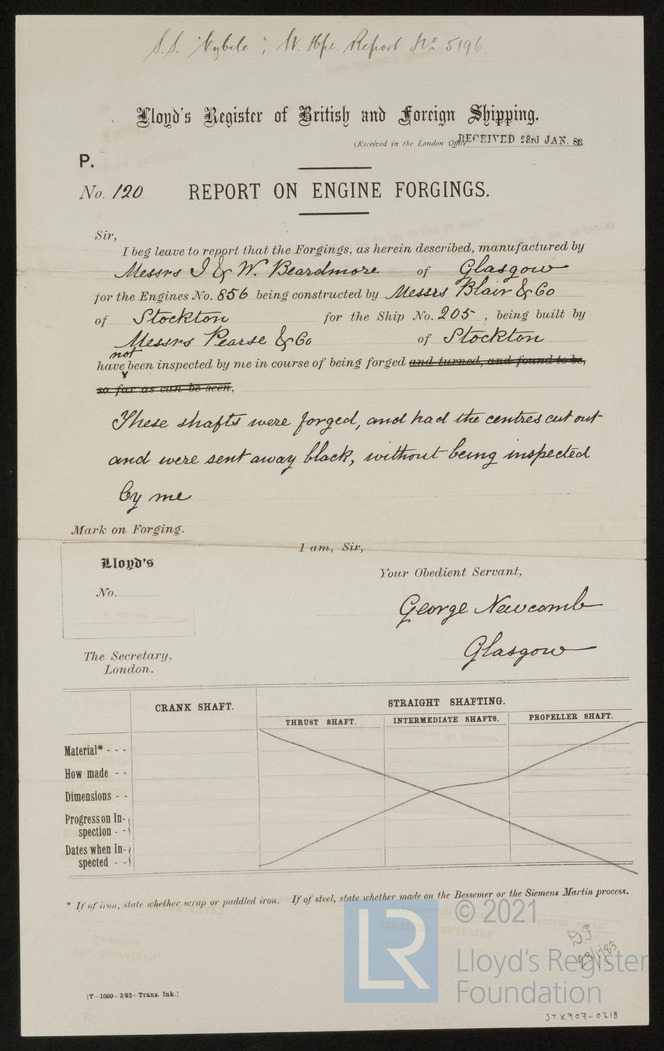 S.S. "Cybele"; W. Hpl. Report No 5196
Lloyd's Register of British and Foreign Shipping.
(Received in the London Office RECEIVED 23rd JAN. 83
P.
No. 120 REPORT ON ENGINE FORGINGS.
Sir,
I beg leave to report that the Forgings, as herein described, manufactured by
Messrs I & W. Beardmore of Glasgow
for the Engines No. 856 being constructed by Messrs Blair & Co
of Stockton for the Ship No. 205, being built by
Messrs Pearse & Co of Stockton
not
have been inspected by me in course of being forged and turned, and found to be,
so far as can be seen,
These shafts were forged, and had the centres cut out
and were sent away black, without being inspected
by me
Mark on Forging.
I am, Sir,
Lloyd's
Your Obedient Servant,
No.
George Newcomb
Glasgow
The Secretary,
London.
CRANK SHAFT. STRAIGHT SHAFTING.
THRUST SHAFT. INTERMEDIATE SHAFTS. PROPELLER SHAFT.
Material* - - -
How made - -
Dimensions - -
Progress on In-
spection - -
Dates when In-
spected - -
* If of iron, state whether scrap or puddled iron. If of steel, state whether made on the Bessemer or the Siemens Martin process.
LR © 2021
Lloyd's Register
Foundation
23/1/83
[T—1000—3/82—Trans. Ink.]
STK907-0218